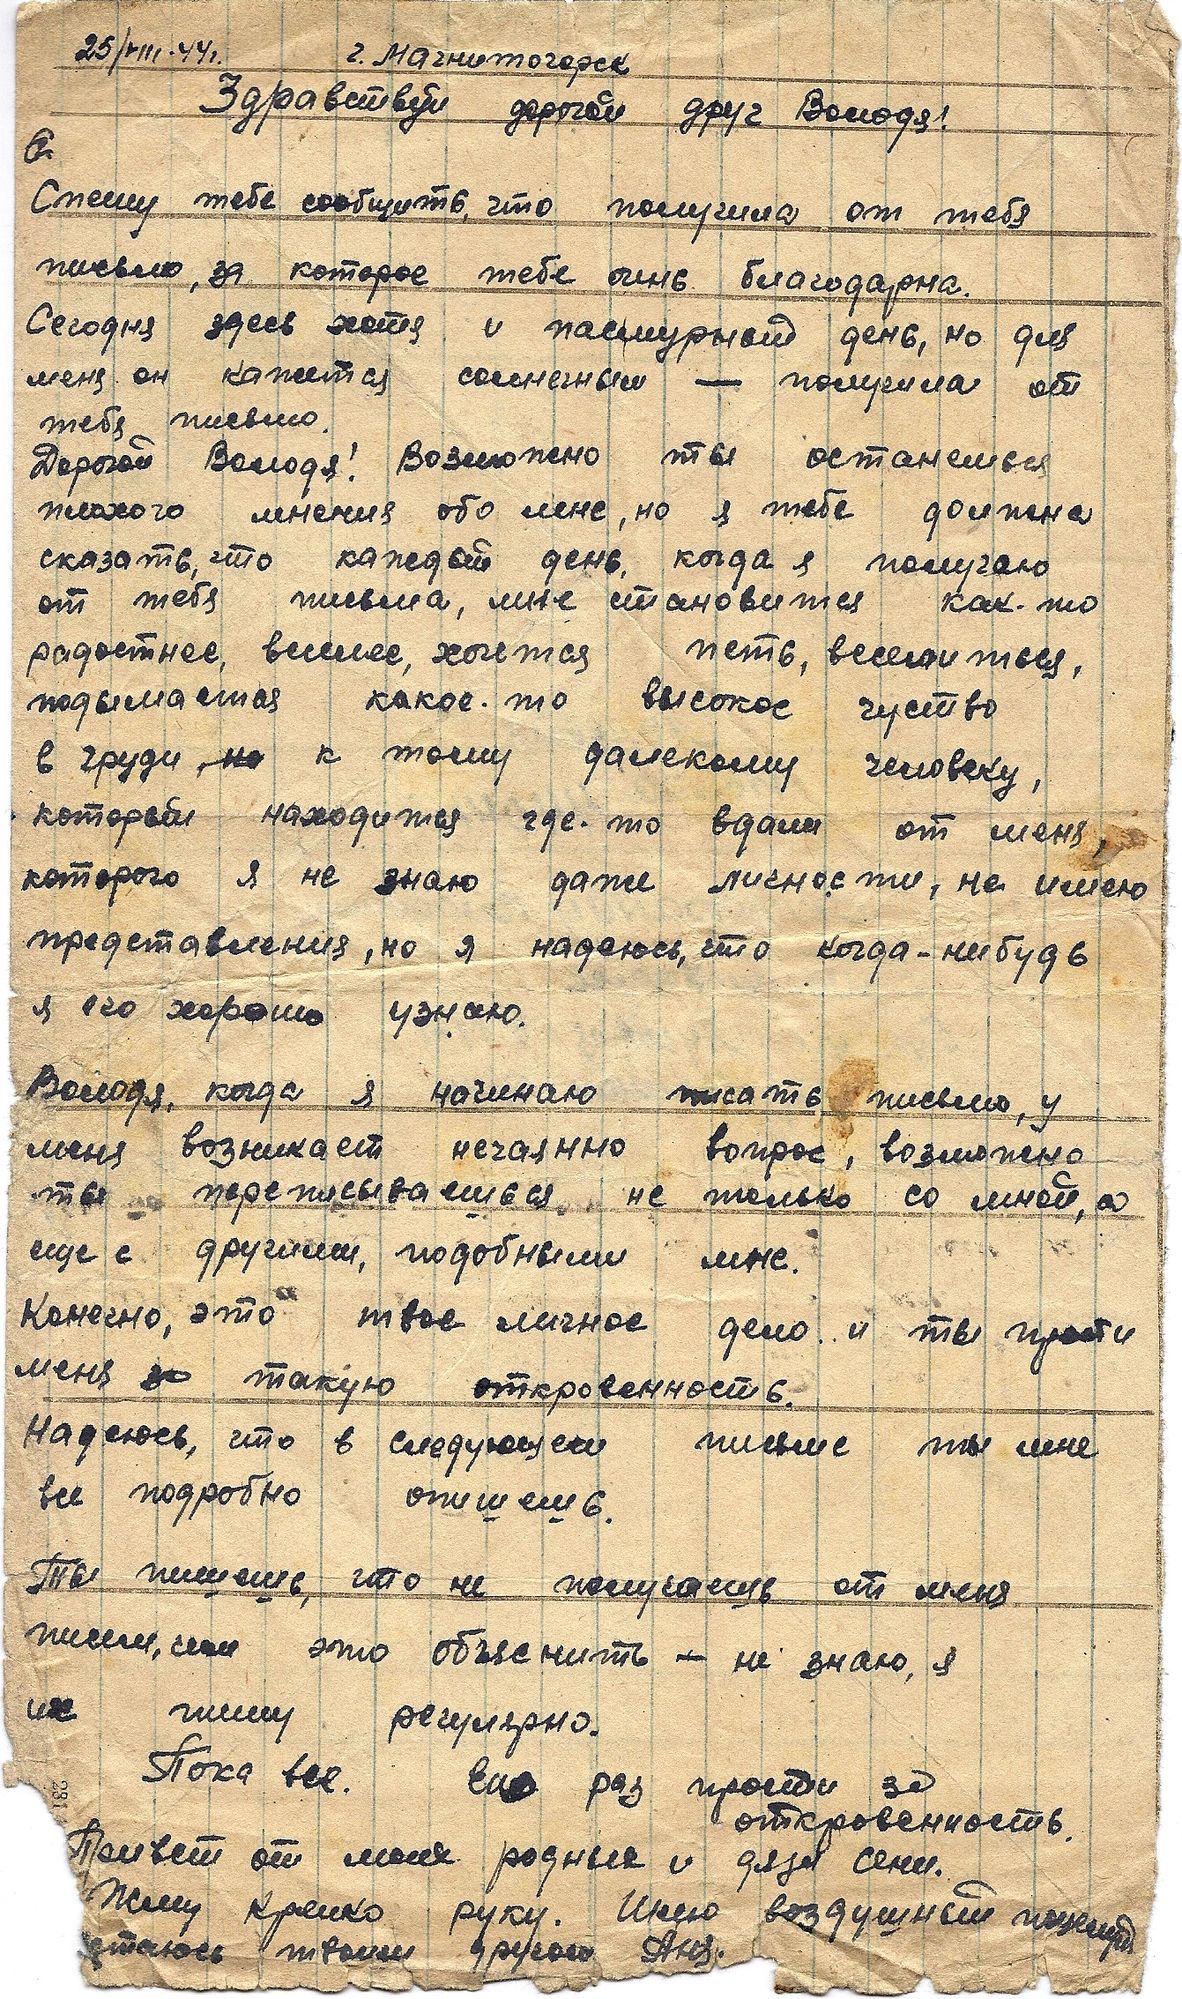 25/VIII-44г. г. Магнитогорск
Здравствуй дорогой друг Володя!
Спешу тебе сообщить, что получила от тебя
письмо, за которое тебе очнь благодарна.
Сегодня здесь хотя и пасмурный день, но для
меня он кажится солнечным — получила от
тебя письмо.
Дорогой Володя! Возможно ты останешься
плохого мнения обо мне, но я тебе должена
сказать, что каждый день, когда я получаю
от тебя письма, мне становится как-то
радостнее, веселее, хочется петь, веселиться,
подымается какое-то высокое чуство
в груди, но к тому далекому человеку,
который находится где-то вдали от меня,
которого я не знаю даже личности, не имею
представления, но я надеюсь, что когда-нибудь
я его хорошо узнаю.
Володя, когда я начинаю писать письмо, у
меня возникает нечаянно вопрос, возможно
ты переписываешься не только со мной, а
еще с другими, подобными мне.
Конечно, это твое личное дело и ты прости
меня за такую откровенность.
Надеюсь, что в следующем письме ты мне
все подробно опишешь.
Ты пишешь, что не получаешь от меня
писем, чем это объяснить — не знаю, я
их пишу регулярно.
Пока все. Еще раз прости за
откровенность.
Привет от моих родных и дяди Сени.
Жму крепко руку. Шлю воздушный поцелуй
остаюсь твоим другом Аня.
231